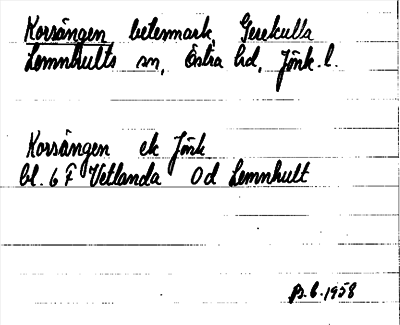 Korsängen betesmark, Gerekulla
Lemnhults sn, Östra hd, Jönk. l.
Korsängen ek Jönk
bl. 6 F Vetlanda Od Lemnhult
B. 6. 1958